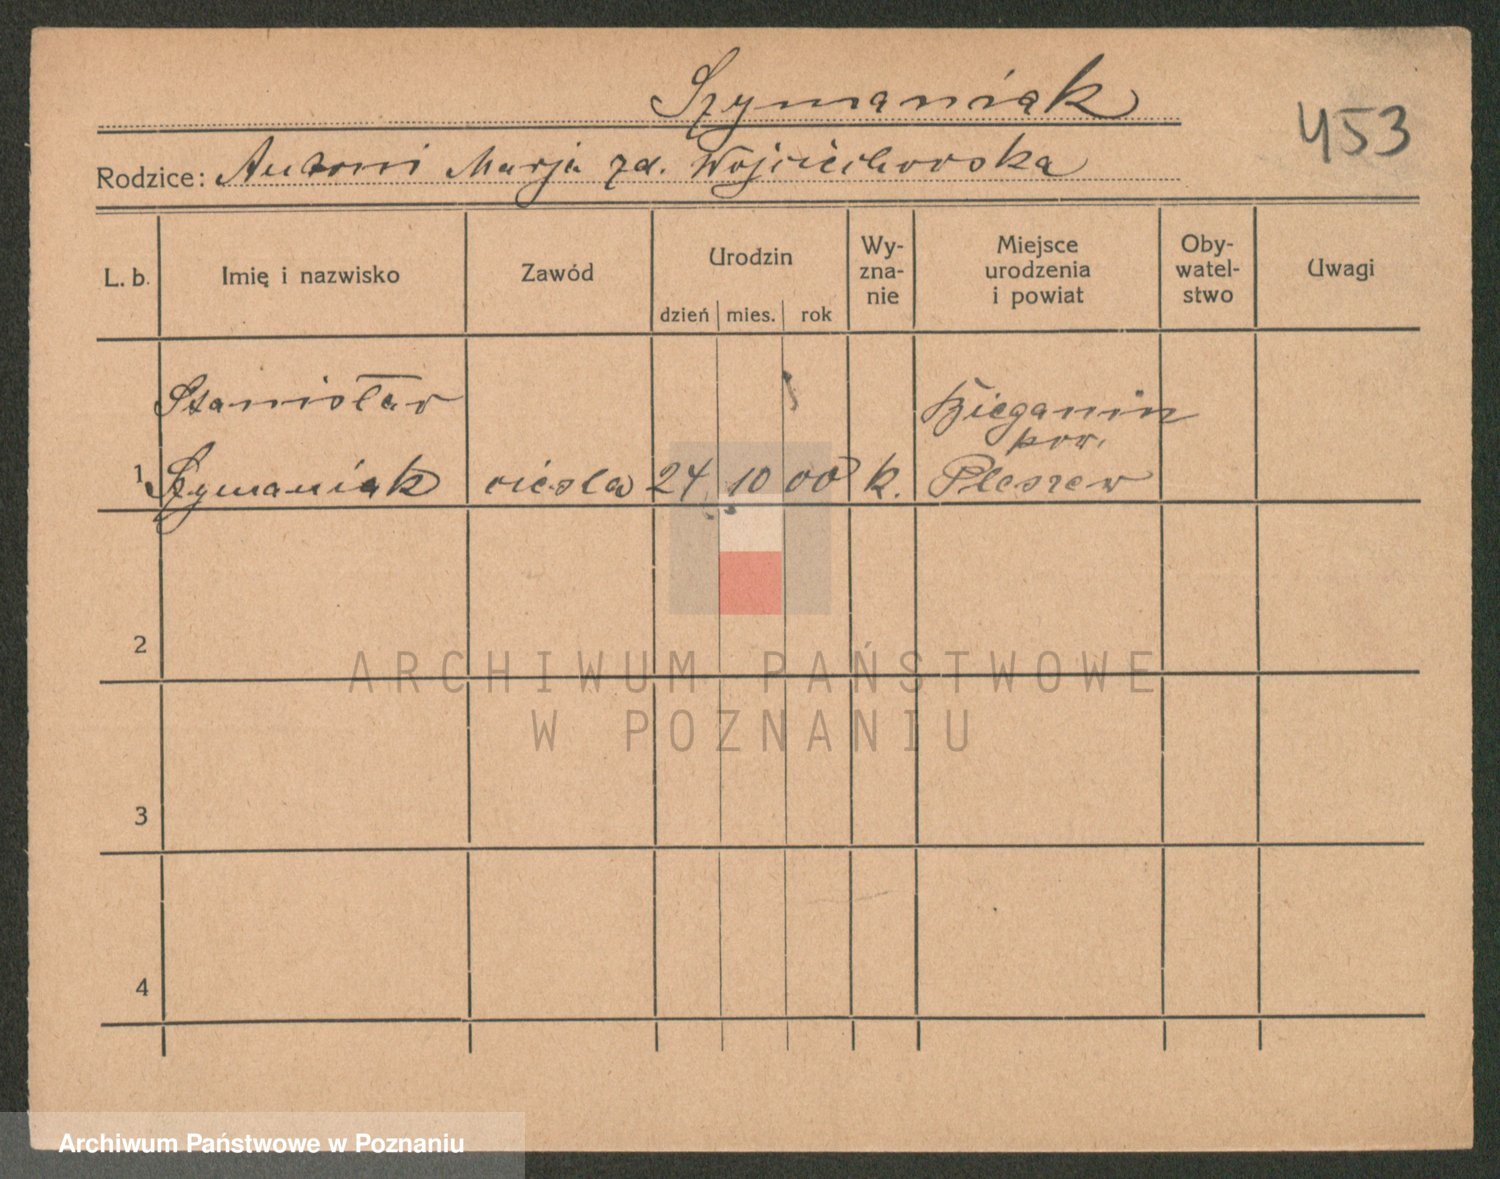 Szymaniak
453
Rodzice: Antoni Marja zd. Wojciechowska
L. b. Imię i nazwisko Zawód Urodzin dzień mies. rok Wy-zna-nie Miejsce urodzenia i powiat Oby-watel-stwo Uwagi
Stanisław Bieganin
pow.
1 Szymaniak cieśla 24 10 00 k. Pleszew
2
ARCHIWUM PAŃSTWOWE
W POZNANIU
3
4
Archiwum Państwowe w Poznaniu